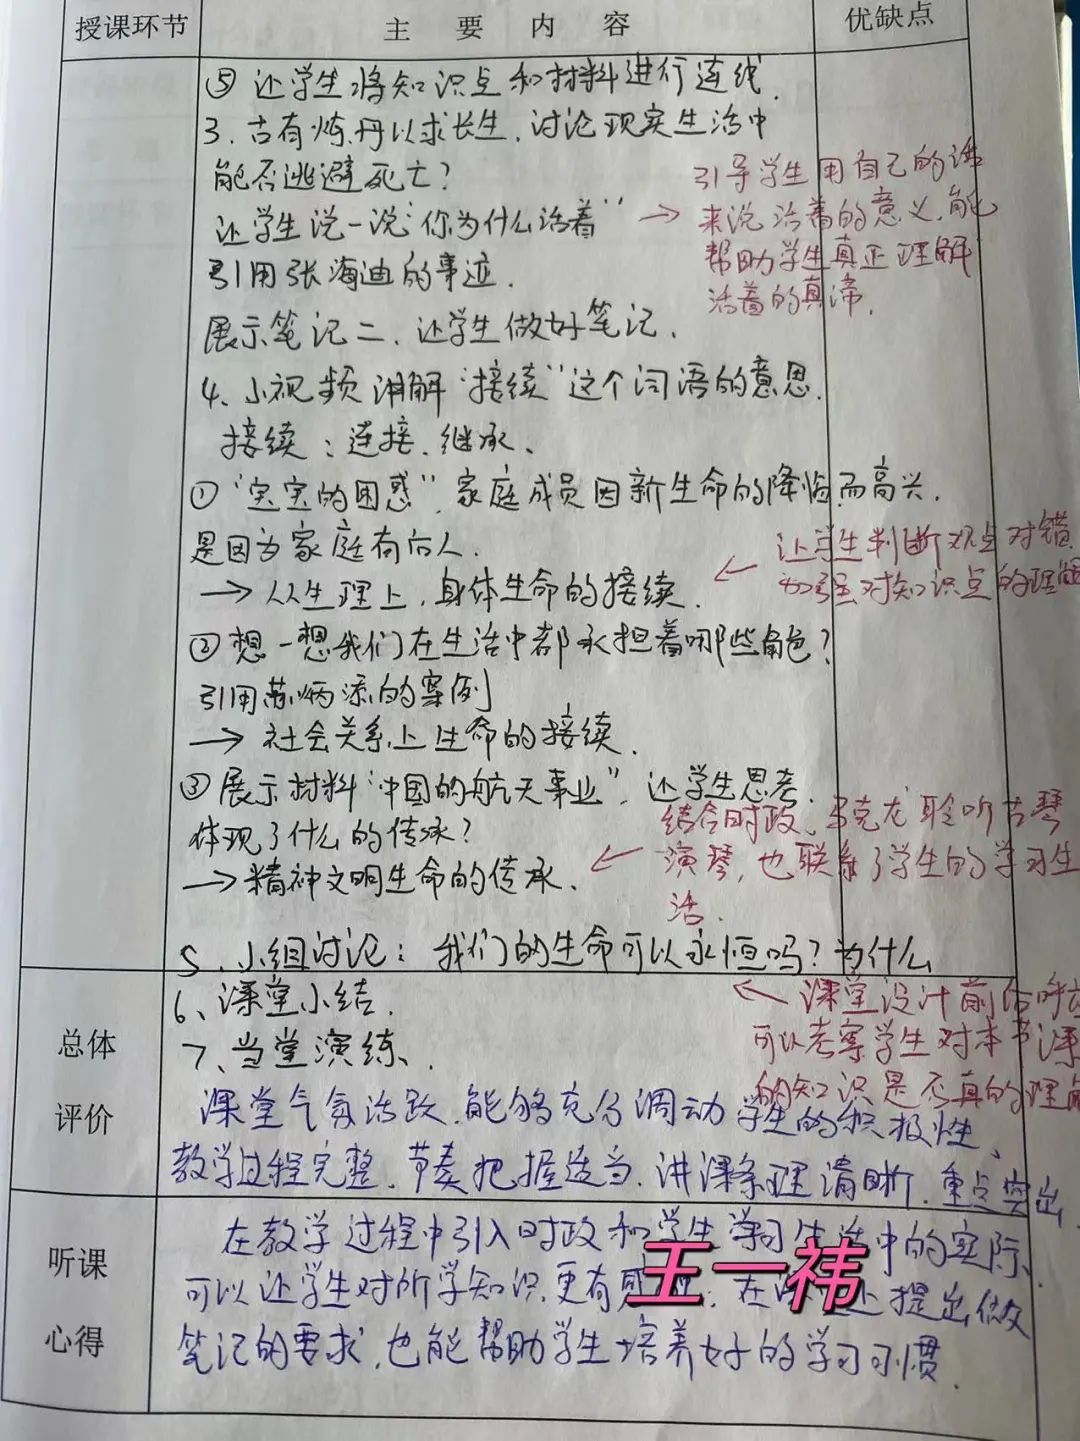 授课环节 主要内容 优缺点
⑤ 让学生将知识点和材料进行连线.
3. 古有炼丹以求长生, 讨论现实生活中
能否逃避死亡?
让学生说一说“你为什么活着”
引用张海迪的事迹.
展示笔记二、让学生做好笔记.
→ 引导学生用自己的话
来说活着的意义, 能
帮助学生真正理解
活着的真谛.
4、小视频讲解“接续”这个词语的意思.
接续: 连接、继承、
① “宝宝的困惑”, 家庭成员因新生命的降临而高兴.
是因为家庭有后人.
→ 从生理上, 身体生命的接续.
← 让学生判断观点对错
加强对知识点的理解
② 想一想我们在生活中都承担着哪些角色?
引用苏炳添的案例
→ 社会关系上生命的接续.
③ 展示材料“中国的航天事业”, 让学生思考,
体现了什么的传承?
→ 精神文明生命的传承、
← 结合时政、马克龙聆听古琴
演琴, 也联系了学生的学习生
活.
5、小组讨论: 我们的生命可以永恒吗? 为什么
6、课堂小结.
7、当堂演练、
← 课堂设计前后呼应
可以考察学生对本节课
的知识是否真的理解
总体
评价
课堂气氛活跃, 能够充分调动学生的积极性、
教学过程完整, 节奏把握适当, 讲课条理清晰, 重点突出
听课
心得
在教学过程中引入时政和学生学习生活中的实际、
可以让学生对所学知识更有感, 在提出做
笔记的要求, 也能帮助学生培养好的学习习惯.
王一祎